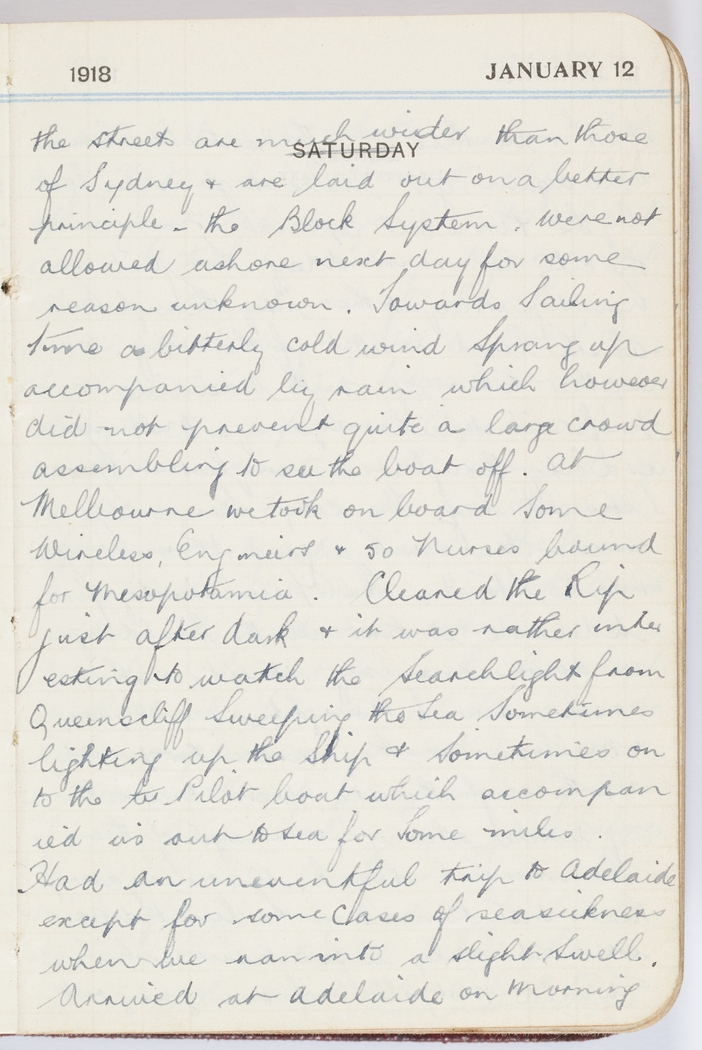 1918 JANUARY 12
SATURDAY
the streets are much wider than those
of Sydney & are laid out on a better
principle - the Block System. Were not
allowed ashore next day for some
reason unknown. Towards Sailing
time a bitterly cold wind Sprang up
accompanied by rain which however
did not prevent quite a large crowd
assembling to see the boat off. At
Melbourne we took on board Some
Wireless, Engineers & 50 Nurses bound
for Mesopotamia. Cleared the Rip
just after dark & it was rather inter
esting to watch the Searchlight from
Queenscliff Sweeping the Sea Sometimes
lighting up the Ship & Sometimes on
to the to Pilot boat which accompan
ied us out to sea for Some miles.
Had an uneventful trip to Adelaide
except for some Cases of seasickness
when we ran into a slight Swell.
Arrived at Adelaide on Morning